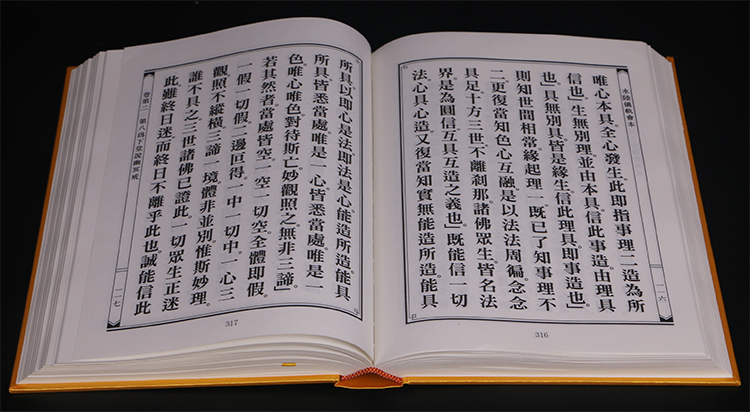 水陸儀軌會本 一一六
唯心本具。全心發生。此即指事理二造為所
信也」生無別理。並由本具。信此事造。由理具
也」具無別具。皆是緣生。信此理具。即事造也」
則知世間相常。緣起理一。既已了知事理不
二。更復當知色心互融。是以法法周徧。念念
具足。十方三世。不離剎那。諸佛眾生。皆名法
界。是為圓信互具互造之義也」既能信一切
法。心具心造。又復當知實無能造所造。能具
316
所具。以即心是法。即法是心。能造所造。能具
所具。皆悉當處唯是一心。皆悉當處唯是一
色。唯心唯色。對待斯亡。妙觀照之。無非三諦」
若其然者。當處皆空。一空一切空。全體即假。
一假一切假。二邊叵得。一中一切中。一心三
觀。照不縱橫。三諦一境。體非並別。惟斯妙理。
誰不具之。三世諸佛已證此。一切眾生正迷
此。雖終日迷。而終日不離乎此也。誠能信此
卷第二 第八爲下堂說幽冥戒 一一七
317